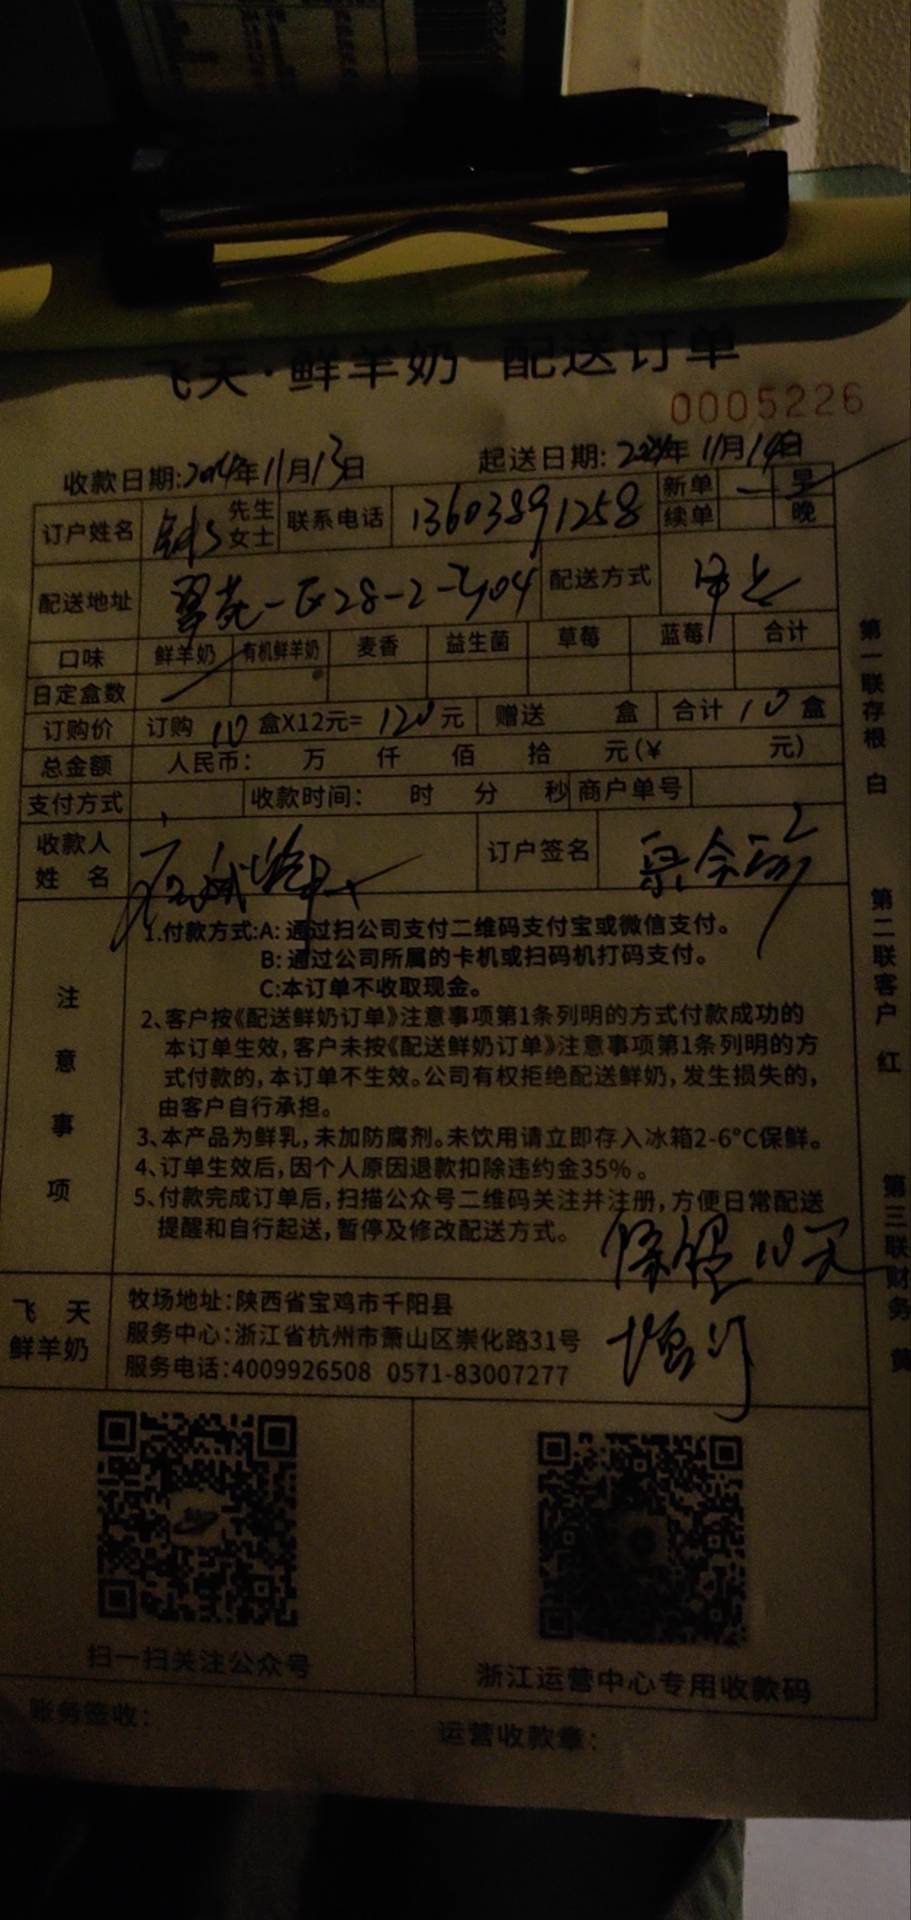 飞天·鲜羊奶 配送订单
0005226
收款日期:2024年11月13日 起送日期:2024年11月14日
订户姓名 先生 女士 联系电话 13603891258 新单 续单 早 晚
配送地址 翠苑一区28-2-704 配送方式
口味 鲜羊奶 有机鲜羊奶 麦香 益生菌 草莓 蓝莓 合计
日定盒数
订购价 订购 10 盒X12元= 120 元 赠送 盒 合计 10 盒
总金额 人民币: 万 仟 佰 拾 元(¥ 元)
支付方式 收款时间: 时 分 秒 商户单号
收款人 姓 名 订户签名
注意事项
1.付款方式:A: 通过扫公司支付二维码支付宝或微信支付。
B: 通过公司所属的卡机或扫码机打码支付。
C:本订单不收取现金。
2、客户按《配送鲜奶订单》注意事项第1条列明的方式付款成功的
本订单生效,客户未按《配送鲜奶订单》注意事项第1条列明的方
式付款的,本订单不生效。公司有权拒绝配送鲜奶,发生损失的,
由客户自行承担。
3、本产品为鲜乳,未加防腐剂。未饮用请立即存入冰箱2-6°C保鲜。
4、订单生效后,因个人原因退款扣除违约金35%。
5、付款完成订单后,扫描公众号二维码关注并注册,方便日常配送
提醒和自行起送,暂停及修改配送方式。
10天
增订
飞 天
鲜羊奶
牧场地址:陕西省宝鸡市千阳县
服务中心:浙江省杭州市萧山区崇化路31号
服务电话:4009926508 0571-83007277
扫一扫关注公众号
浙江运营中心专用收款码
账务签收:
运营收款章:
第一联存根 白
第二联客户 红
第三联财务 黄